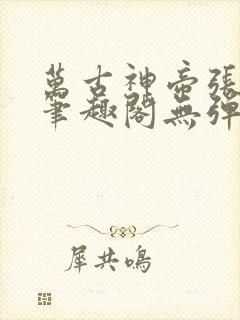 萬古神帝張
筆趣閣無彈
犀共鳴